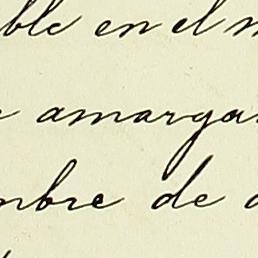 ble en el m
amarga
mbre de